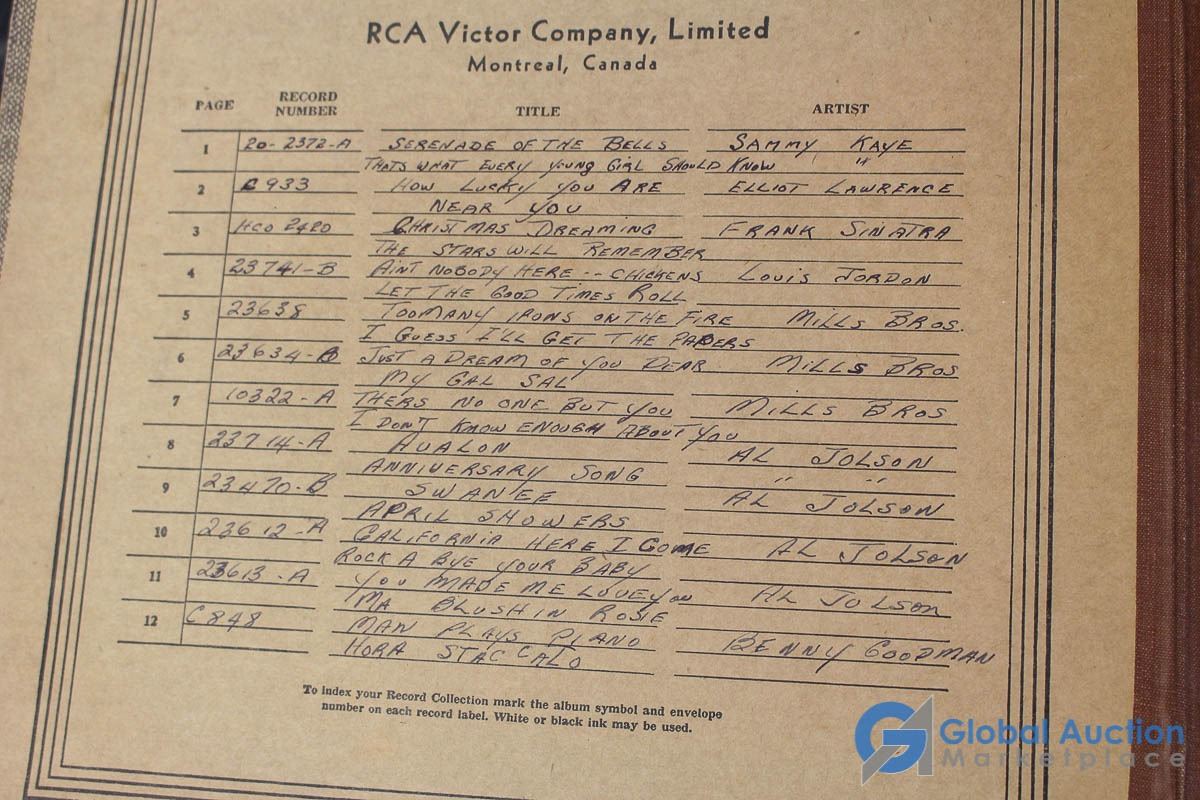 RCA Victor Company, Limited
Montreal, Canada
PAGE RECORD NUMBER TITLE ARTIST
1 20-2372-A SERENADE OF THE BELLS SAMMY KAYE
THATS WHAT EVERY YOUNG GIRL SHOULD KNOW "
2 C933 HOW LUCKY YOU ARE ELLIOT LAWRENCE
NEAR YOU
3 HCO 2420 CHRISTMAS DREAMING FRANK SINATRA
THE STARS WILL REMEMBER
4 23741-B AINT NOBODY HERE -- CHICKENS LOUIS JORDON
LET THE GOOD TIMES ROLL
5 23638 TOOMANY IRONS ON THE FIRE MILLS BROS.
I GUESS I'LL GET THE PAPERS
6 23634-B JUST A DREAM OF YOU DEAR MILLS BROS
MY GAL SAL
7 10322-A THERS NO ONE BUT YOU MILLS BROS
I DON'T KNOW ENOUGH ABOUT YOU
8 23714-A AVALON AL JOLSON
ANNIVERSARY SONG " "
9 23470-B SWANEE AL JOLSON
APRIL SHOWERS
10 23612-A CALIFORNIA HERE I COME AL JOLSON
ROCK A BYE YOUR BABY
11 23613-A YOU MADE ME LOVE YOU AL JOLSON
MA BLUSHIN ROSIE
12 C848 MAN PLAYS PIANO BENNY GOODMAN
HORA STACCALO
To index your Record Collection mark the album symbol and envelope
number on each record label. White or black ink may be used.
Global Auction
Marketplace